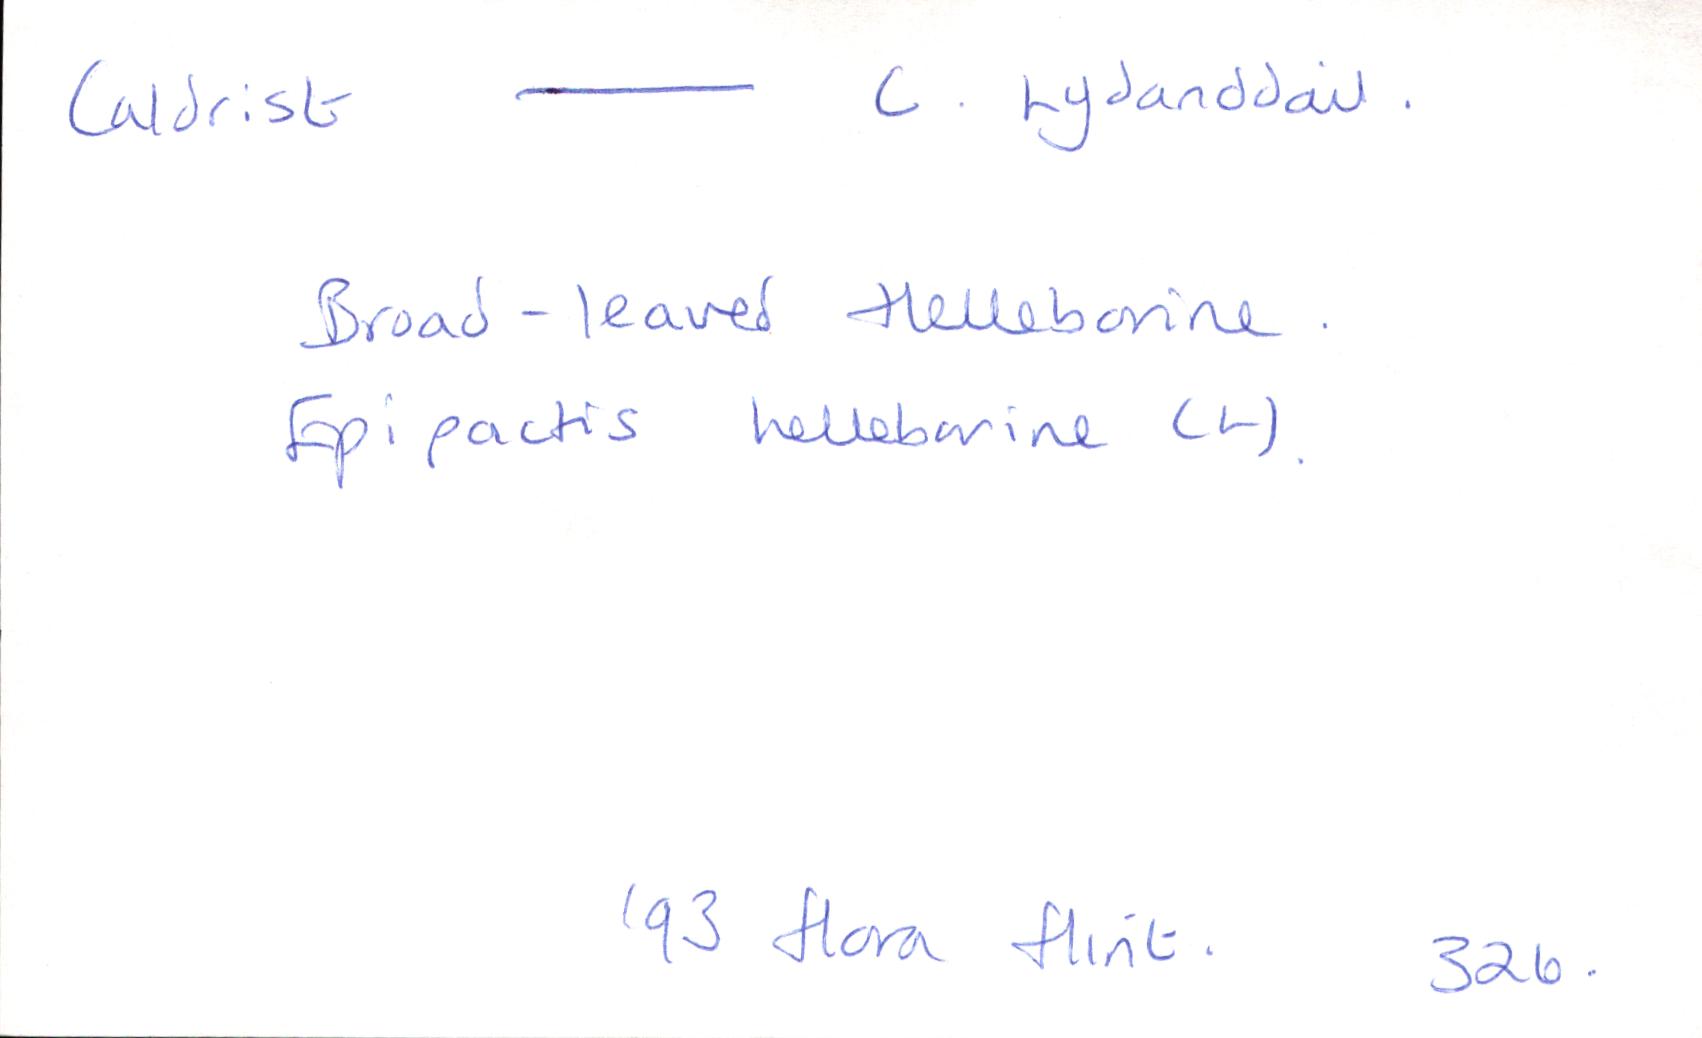 Caldrist — C. Lydanddail.
Broad-leaved Helleborine.
Epipactis helleborine (L).
'93 flora flint. 326.